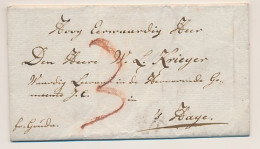 Hoog Eerwaardig Heer
Den Heere W. L. Krieger
Waardig Leeraar in de Hervormde Ge-
meente J. C.
in
3
fr. Gouda
's Hage.